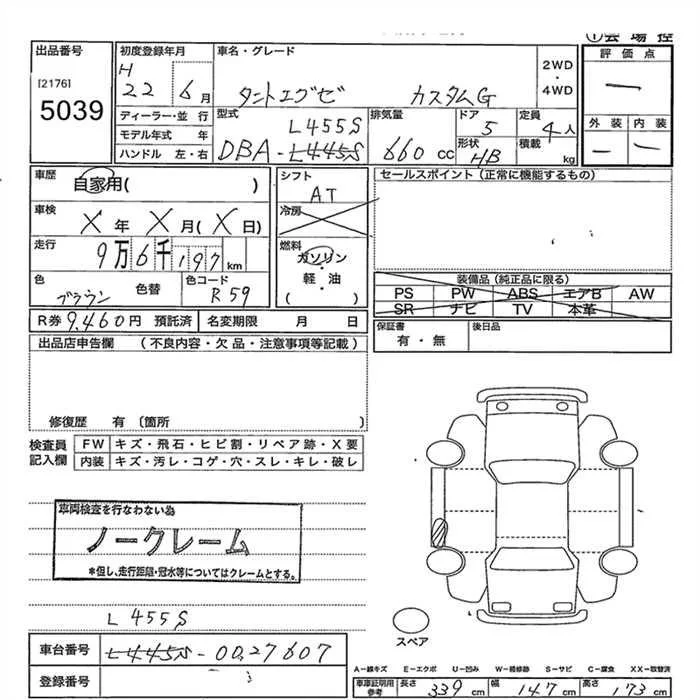 ①会場控
出品番号
[2176]
5039
初度登録年月
H
22 6月
ディーラー・並行
モデル年式 年
ハンドル 左・右
車名・グレード
タントエグゼ カスタムG
2WD
・
4WD
型式
L455S
DBA-L445S
排気量
660cc
ドア
5
形状
HB
定員
4人
積載
kg
評価点
ー
外装 内装
ー ー
車歴
自家用( )
車検
X年X月(X日)
走行
9万6千197km
色
ブラウン
色替
色コード
R59
シフト
AT
冷房
燃料
ガソリン
・
軽・油
( )
セールスポイント(正常に機能するもの)
装備品(純正品に限る)
PS PW ABS エアB AW
SR ナビ TV 本革
R券 9,460円 預託済 名変期限 月 日
保証書
有・無
後日品
出品店申告欄 (不良内容・欠品・注意事項等記載)
修復歴 有 〔箇所 〕
検査員
記入欄
FW キズ・飛石・ヒビ割・リペア跡・X要
内装 キズ・汚レ・コゲ・穴・スレ・キレ・破レ
車両検査を行なわない為
ノークレーム
*但し、走行距離・冠水等についてはクレームとする。
スペア
L455S
車台番号
L445S-0027607
登録番号
A-線キズ E-エクボ U-凹み W-補修跡 S-サビ C-腐食 XX-取替済
車庫証明用
参考
長さ 339cm 幅 147cm 高さ 173cm